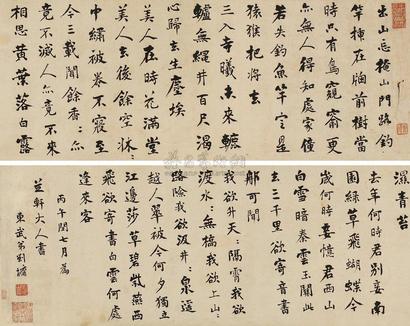 出山忘掩山門路釣
竿插在前樹當
時只有鳥窺窬更
亦無人得知處家僮
若失釣魚竿定是
猿猴把將去
三入寺曦未來轆
轤無繩井百尺渴
心歸去生塵埃
美人在時花滿堂
美人去後餘空牀〻
中繡被卷不寢至
今三載聞餘香〻亦
竟不滅人亦竟不來
相思黃葉落白露
濕青苔
去年何時君別妾南
園綠草飛蝴蝶今
歲何時妾憶君西山
白雪暗秦雲玉關此
去三千里欲寄音書
那可聞
我欲升天〻隔霄我欲
渡水〻無橋我欲上山〻
路險我欲汲井〻泉遥
越人翠被今何夕獨立
江邊莎草碧紫燕西
飛欲寄書白雲何處
逢來客
丙午閏七月為
益軒大人書
東武弟劉墉